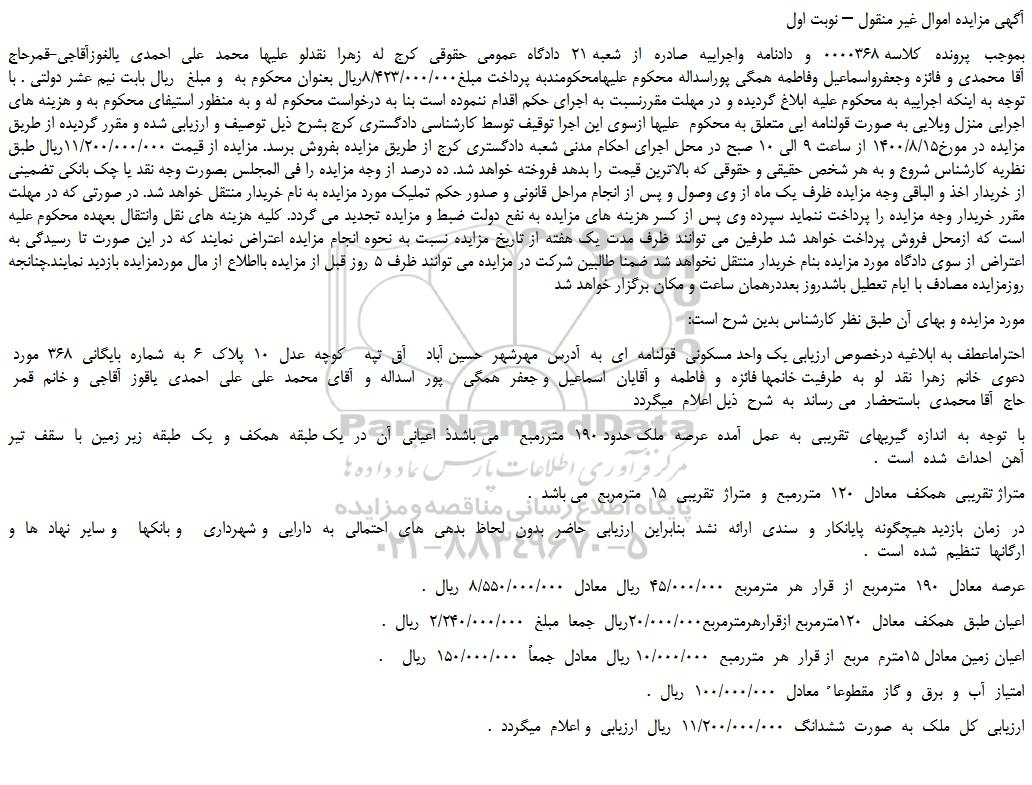 آگهی مزایده اموال غیر منقول – نوبت اول
بموجب پرونده کلاسه ۰۰۰۰۳۶۸ و دادنامه واجراییه صادره از شعبه ۲۱ دادگاه عمومی حقوقی کرج له زهرا نقدلو علیها محمد علی احمدی یالغوزآقاجی-قمرحاج
آقا محمدی و فائزه وجعفرواسماعیل وفاطمه همگی پوراسداله محکوم علیهامحکومندبه پرداخت مبلغ۸/۴۲۳/۰۰۰/۰۰۰ریال بعنوان محکوم به و مبلغ ریال بابت نیم عشر دولتی . با
توجه به اینکه اجراییه به محکوم علیه ابلاغ گردیده و در مهلت مقررنسبت به اجرای حکم اقدام ننموده است بنا به درخواست محکوم له و به منظور استیفای محکوم به و هزینه های
اجرایی منزل ویلایی به صورت قولنامه ایی متعلق به محکوم علیها ازسوی این اجرا توقیف توسط کارشناسی دادگستری کرج بشرح ذیل توصیف و ارزیابی شده و مقرر گردیده از طریق
مزایده در مورخ۱۴۰۰/۸/۱۵ از ساعت ۹ الی ۱۰ صبح در محل اجرای احکام مدنی شعبه دادگستری کرج از طریق مزایده بفروش برسد. مزایده از قیمت ۱۱/۲۰۰/۰۰۰/۰۰۰ریال طبق
نظریه کارشناس شروع و به هر شخص حقیقی و حقوقی که بالاترین قیمت را بدهد فروخته خواهد شد. ده درصد از وجه مزایده را فی المجلس بصورت وجه نقد یا چک بانکی تضمینی
از خریدار اخذ و الباقی وجه مزایده ظرف یک ماه از وی وصول و پس از انجام مراحل قانونی و صدور حکم تملیک مورد مزایده به نام خریدار منتقل خواهد شد. در صورتی که در مهلت
مقرر خریدار وجه مزایده را پرداخت ننماید سپرده وی پس از کسر هزینه های مزایده به نفع دولت ضبط و مزایده تجدید می گردد. کلیه هزینه های نقل وانتقال بعهده محکوم علیه
است که ازمحل فروش پرداخت خواهد شد طرفین می توانند ظرف مدت یک هفته از تاریخ مزایده نسبت به نحوه انجام مزایده اعتراض نمایند که در این صورت تا رسیدگی به
اعتراض از سوی دادگاه مورد مزایده بنام خریدار منتقل نخواهد شد ضمنا طالبین شرکت در مزایده می توانند ظرف ۵ روز قبل از مزایده بااطلاع از مال موردمزایده بازدید نمایند.چنانجه
روزمزایده مصادف با ایام تعطیل باشدروز بعددرهمان ساعت و مکان برگزار خواهد شد
مورد مزایده و بهای آن طبق نظر کارشناس بدین شرح است:
احتراماعطف به ابلاغیه درخصوص ارزیابی یک واحد مسکونی قولنامه ای به آدرس مهرشهر حسین آباد آق تپه کوچه عدل ۱۰ پلاک ۶ به شماره بایگانی ۳۶۸ مورد
دعوی خانم زهرا نقد لو به طرفیت خانمها فائزه و فاطمه و آقایان اسماعیل و جعفر همگی پور اسداله و آقای محمد علی علی احمدی یاقوز آقاجی و خانم قمر
حاج آقا محمدی باستحضار می رساند به شرح ذیل اعلام میگردد
با توجه به اندازه گیریهای تقریبی به عمل آمده عرصه ملک حدود ۱۹۰ متررمبع می باشدذ اعیانی آن در یک طبقه همکف و یک طبقه زیر زمین با سقف تیر
آهن احداث شده است .
متراژ تقریبی همکف معادل ۱۲۰ متررمبع و متراژ تقریبی ۱۵ مترمربع می باشد .
در زمان بازدید هیچگونه پایانکار و سندی ارائه نشد بنابراین ارزیابی حاضر بدون لحاظ بدهی های احتمالی به دارایی و شهرداری و بانکها و سایر نهاد ها و
ارگانها تنظیم شده است .
عرصه معادل ۱۹۰ مترمربع از قرار هر مترمربع ۴۵/۰۰۰/۰۰۰ ریال معادل ۸/۵۵۰/۰۰۰/۰۰۰ ریال .
اعیان طبق همکف معادل ۱۲۰مترمربع ازقرارهرمترمربع۲۰/۰۰۰/۰۰۰ریال جمعا مبلغ ۲/۲۴۰/۰۰۰/۰۰۰ ریال .
اعیان زمین معادل ۱۵مترم مربع از قرار هر متررمبع ۱۰/۰۰۰/۰۰۰ ریال معادل جمعاً ۱۵۰/۰۰۰/۰۰۰ ریال .
امتیاز آب و برق و گاز مقطوعا ً معادل ۱۰۰/۰۰۰/۰۰۰ ریال .
ارزیابی کل ملک به صورت ششدانگ ۱۱/۲۰۰/۰۰۰/۰۰۰ ریال ارزیابی و اعلام میگردد .
ParsNamadData
مرکز فرآوری اطلاعات پارس نماد داده ها
پایگاه اطلاع رسانی مناقصه و مزایده
۰۲۱-۸۸۳۴۹۶۷۰-۵